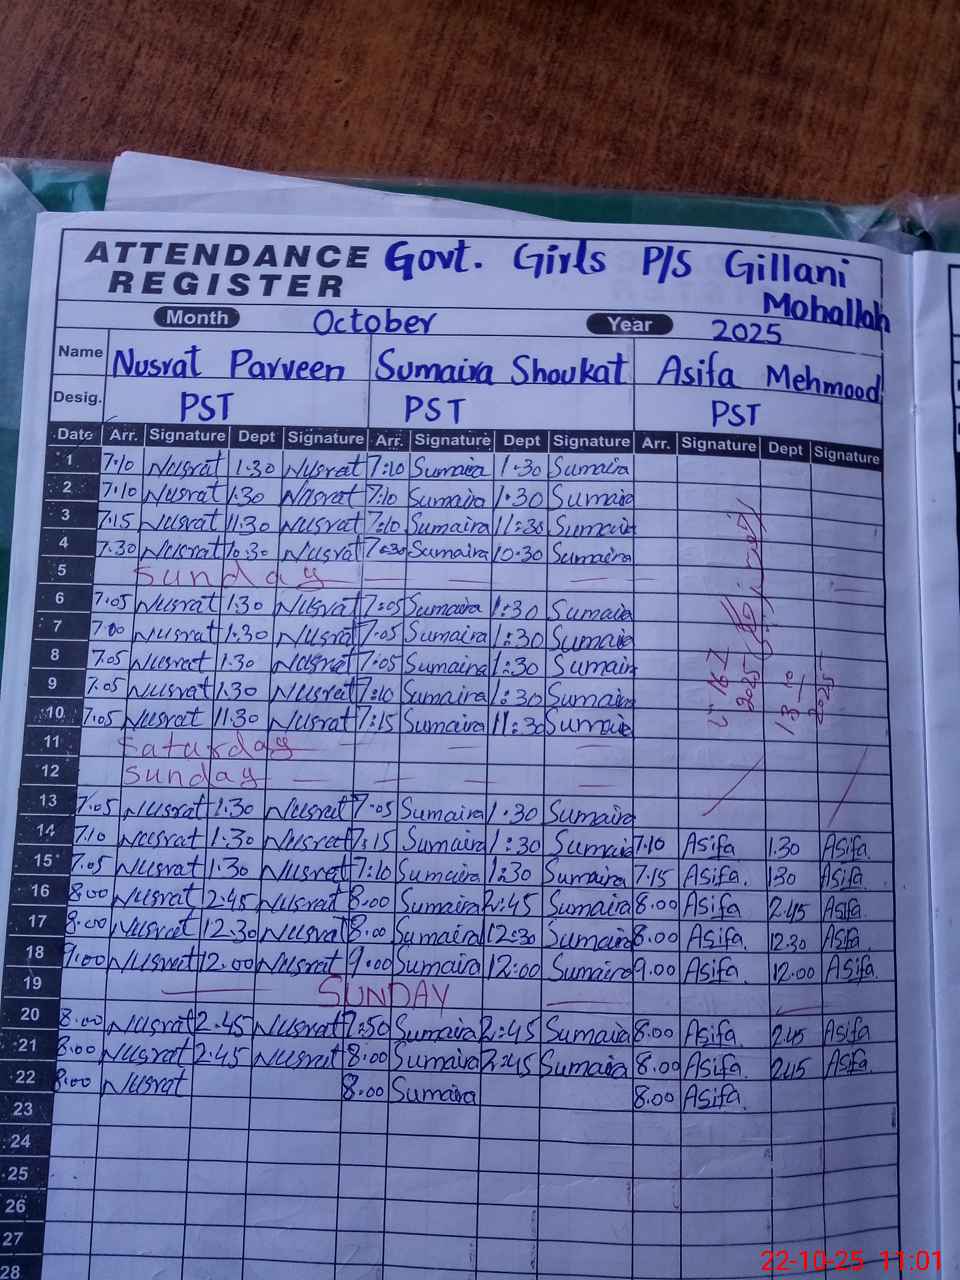 ATTENDANCE REGISTER Govt. Girls P/S Gillani Mohallah
Month October Year 2025
Name Nusrat Parveen Sumaira Shoukat Asifa Mehmood
Desig. PST PST PST
Date Arr. Signature Dept Signature Arr. Signature Dept Signature Arr. Signature Dept Signature
1 7.10 Nusrat 1.30 Nusrat 7:10 Sumaira 1.30 Sumaira
2 7.10 Nusrat 1.30 Nusrat 7:10 Sumaira 1.30 Sumaira
3 7.15 Nusrat 11.30 Nusrat 7:10 Sumaira 11:30 Sumaira
4 7.30 Nusrat 10.30 Nusrat 7:30 Sumaira 10:30 Sumaira
5 Sunday
6 7.05 Nusrat 1.30 Nusrat 7:05 Sumaira 1:30 Sumaira
7 7.00 Nusrat 1.30 Nusrat 7:05 Sumaira 1:30 Sumaira
8 7.05 Nusrat 1.30 Nusrat 7:05 Sumaira 1:30 Sumaira
9 7.05 Nusrat 1.30 Nusrat 7:10 Sumaira 1:30 Sumaira
10 7.05 Nusrat 11.30 Nusrat 7:15 Sumaira 11:30 Sumaira
11 Saturday
12 Sunday
13 7.05 Nusrat 1.30 Nusrat 7:05 Sumaira 1:30 Sumaira
14 7.10 Nusrat 1.30 Nusrat 7:15 Sumaira 1:30 Sumaira 7.10 Asifa 1.30 Asifa.
15 7.05 Nusrat 1.30 Nusrat 7:10 Sumaira 1:30 Sumaira 7.15 Asifa. 130 Asifa.
16 8.00 Nusrat 2.45 Nusrat 8:00 Sumaira 2:45 Sumaira 8.00 Asifa 2.45 Asifa.
17 8.00 Nusrat 12.30 Nusrat 8:00 Sumaira 12:30 Sumaira 8.00 Asifa. 12.30 Asifa.
18 9.00 Nusrat 12.00 Nusrat 9:00 Sumaira 12:00 Sumaira 9.00 Asifa. 12.00 Asifa.
19 SUNDAY
20 8.00 Nusrat 2.45 Nusrat 7:50 Sumaira 2:45 Sumaira 8.00 Asifa. 2.45 Asifa.
21 8.00 Nusrat 2.45 Nusrat 8:00 Sumaira 2:45 Sumaira 8.00 Asifa. 245 Asifa.
22 8.00 Nusrat 8:00 Sumaira 8.00 Asifa.
23
24
25
26
27
28
13-10-2025
22-10-25 11:01